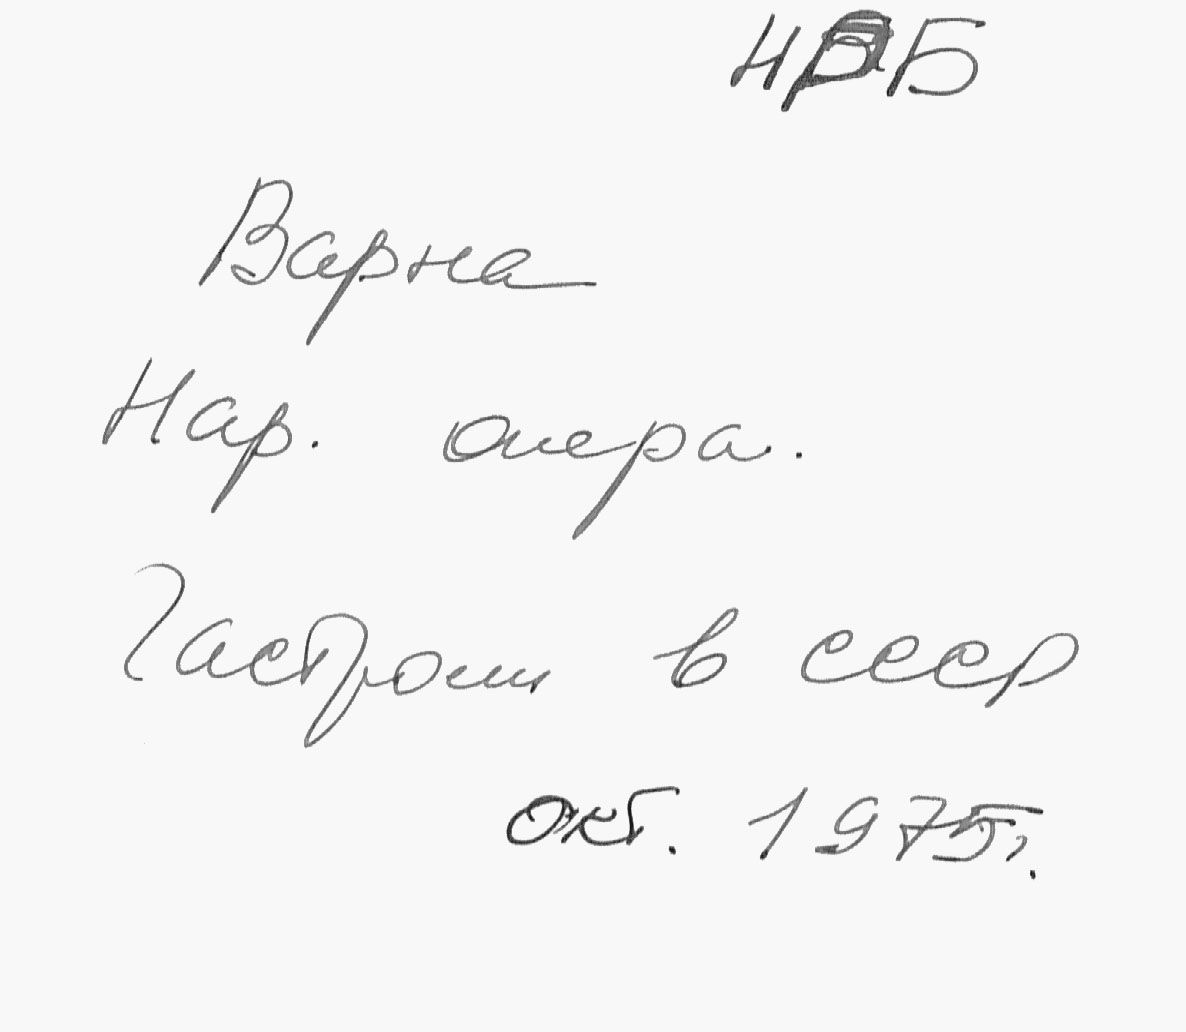 НРБ
Варна
Нар. опера.
Гастроли в СССР
окт. 1975г.